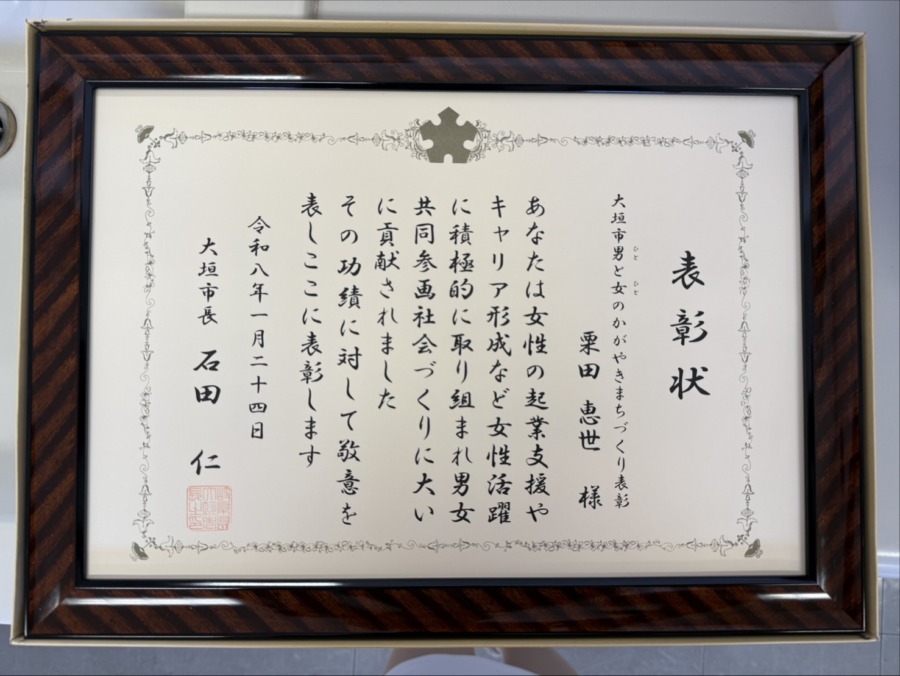 表彰状
大垣市男と女のかがやきまちづくり表彰
ひと ひと
栗田 恵世 様
あなたは女性の起業支援や
キャリア形成など女性活躍
に積極的に取り組まれ男女
共同参画社会づくりに大い
に貢献されました
その功績に対して敬意を
表しここに表彰します
令和八年一月二十四日
大垣市長 石田 仁